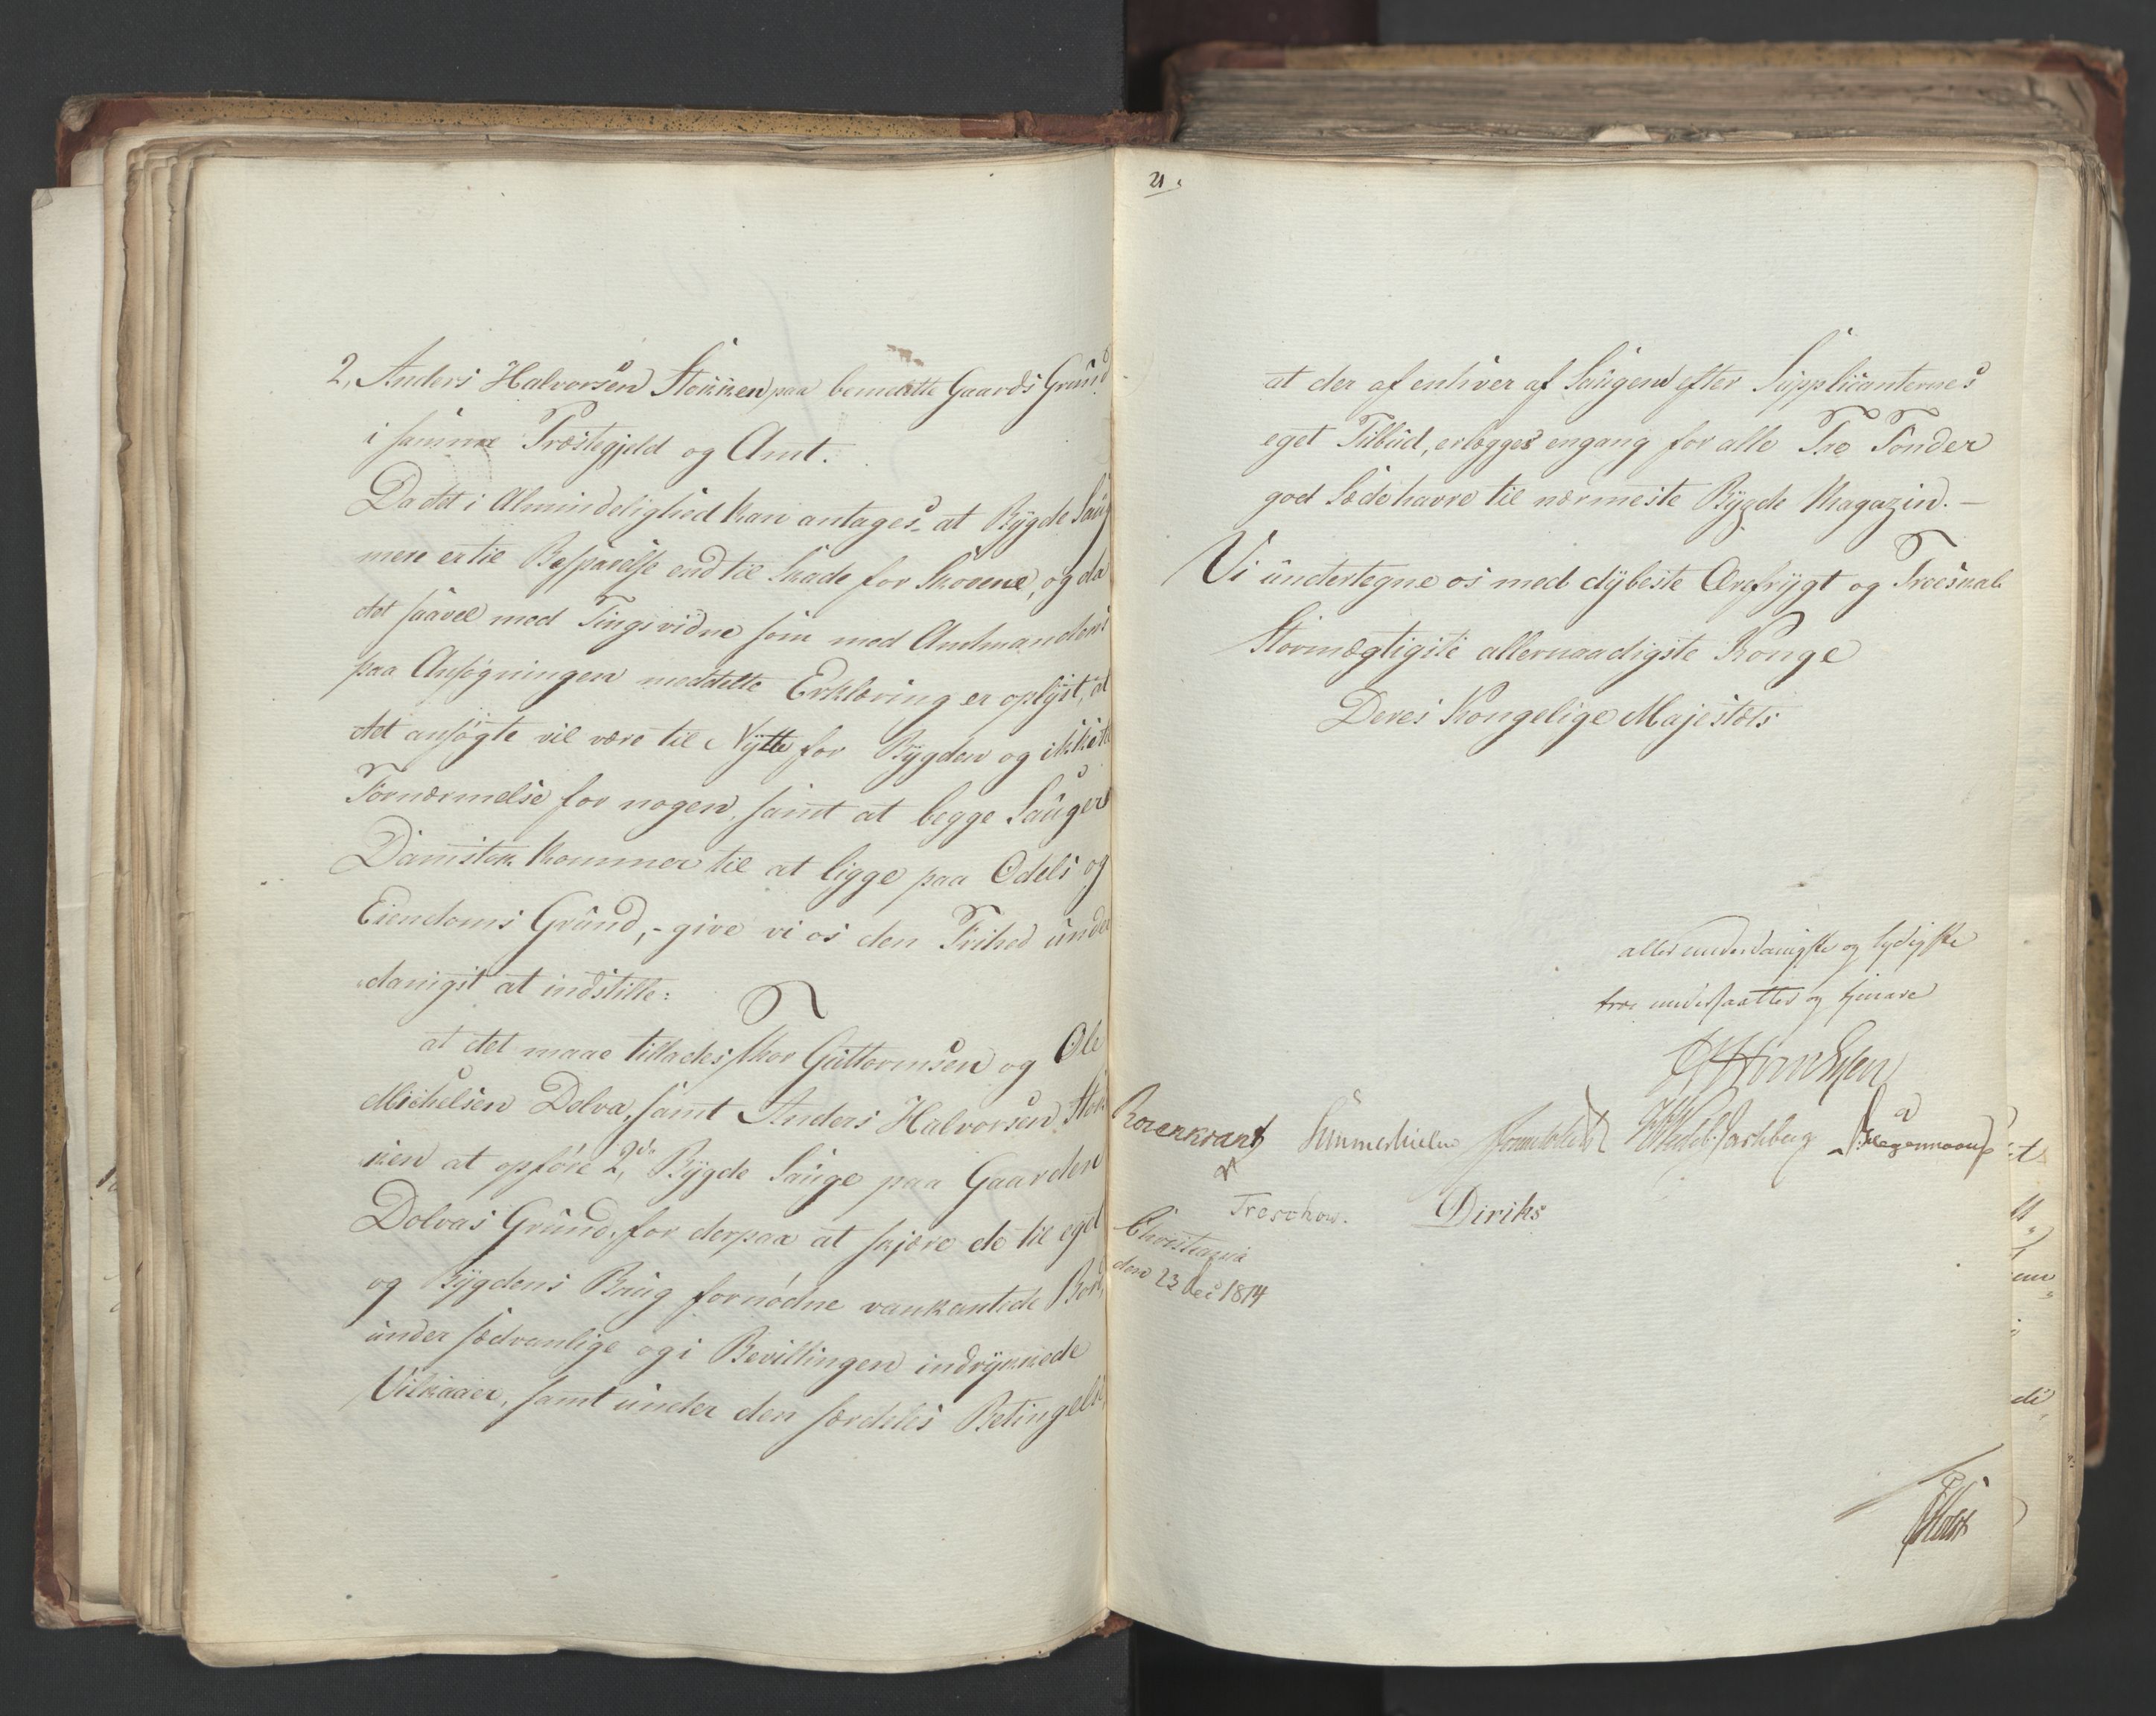 2, Anders Halvorsen Stokken paa bemeldte Gaards Grund
i samme Præstegjeld og Amt.
Da det i Almindelighed kan antages at Bygde Saug
mere er til Besparelse end til Skade for Skovene, og da
det saavel med Tingsvidne som med Amtmandens
paa Ansøgningen meddelte Erklæring er oplyst, at
det ansøgte vil være til Nytte for Bygden og ikke til
Fornærmelse for nogen, samt at begge Sauger
Damstok kommer til at ligge paa Odels og
Eiendoms Grund, - give vi os den Frihed under
danigst at indstille:
at det maae tillades Guttormsen og Ole
Michelsen Dolva, samt Anders Halvorsen Stok
ken at opføre 2de Bygde Sauge paa Gaarden
Dolvas Grund, for derpaa at skjære de til eget
og Bygdens Brug fornødne vankantede Bord,
under sædvanlige og i Bevillingen indrykkede
Vilkaaer, samt under den særdeles Betingelse,
21.
at der af enhver af Saugene efter Supplicanternes
eget Tilbud, erlægges engang for alle Tre Tønder
god Sædehavre til nærmeste Bygde Magazin. -
Vi undertegne os med dybeste Ærefrygt og Troeskab
Stormægtigste allernaadigste Konge
Deres Kongelige Majestæts
allerunderdanigste og lydigste
troe undersaatter og tjenere
Rosenkrantz Sommerhielm Wedel Jarlsberg
Treschow. Diriks
Christiania
den 23 Dec 1814
Holst